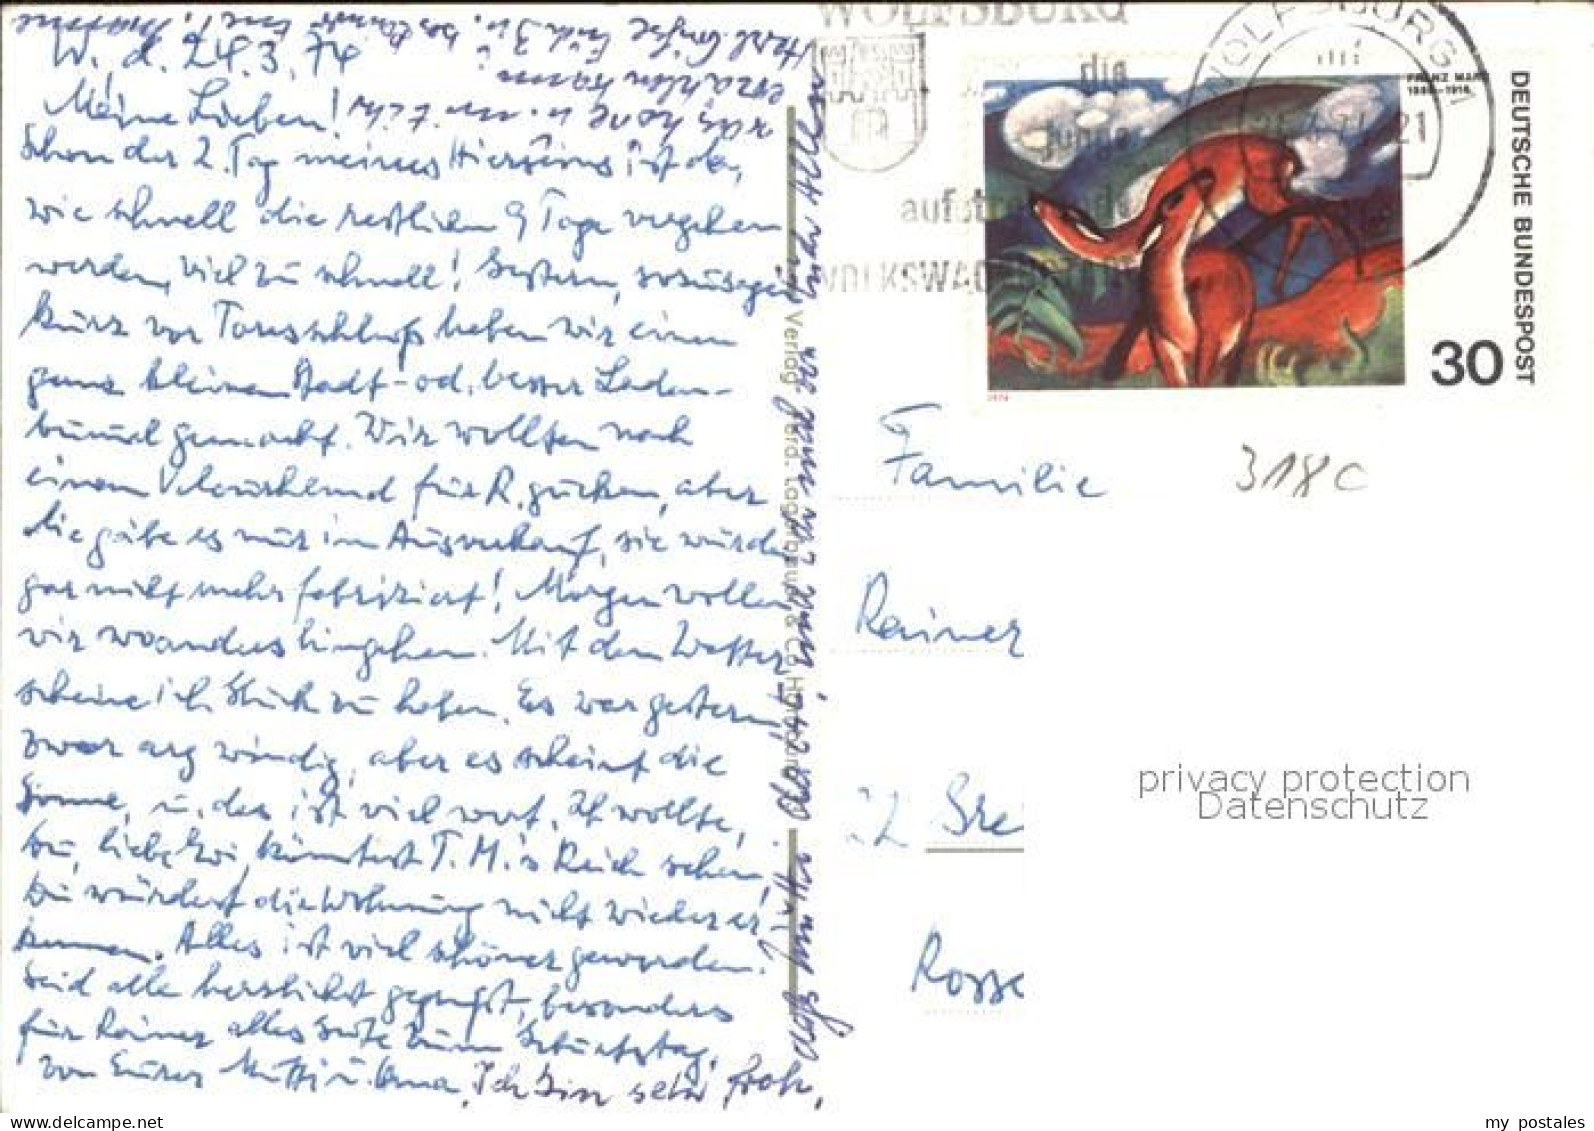 W., d. 24.3.74
Meine Lieben!
Schon der 2. Tag meines Hierseins ist da,
wie schnell die restlichen 9 Tage vergehen
werden, viel zu schnell! Gestern, sozusagen
kurz vor Toresschluß haben wir einen
ganz kleinen Stadt- od. besser Laden-
bummel gemacht. Wir wollten nach
einem Velourshemd für R. gucken, aber
die gäbe es nur im Ausverkauf, sie würden
gar nicht mehr fabriziert! Morgen wollen
wir woanders hingehen. Mit dem Wetter
scheine ich Glück zu haben. Es war gestern
zwar arg windig, aber es scheint die
Sonne, u. das ist viel wert. Ich wollte,
Du, liebe, könntest T. M.'s Reich sehen,
Du würdest die Wohnung nicht wieder er-
kennen. Alles ist viel schöner geworden.
Seid alle herzlichst gegrüßt, besonders
für Rainer alles Gute zum Geburtstag,
von Eurer Mutti u. Oma. Ich bin sehr froh,
daß Mutti da ist u.
erzählen kann
Herzl. Grüße
Verlag Ferd. Lagerbauer & Co Hamburg
WOLFSBURG
die
junge
aufstrebende
VOLKSWAGENSTADT
WOLFSBURG 1
21
FRANZ MARC
1880-1916
DEUTSCHE BUNDESPOST
30
1974
Familie
318c
Rainer
privacy protection
Datenschutz
my postales